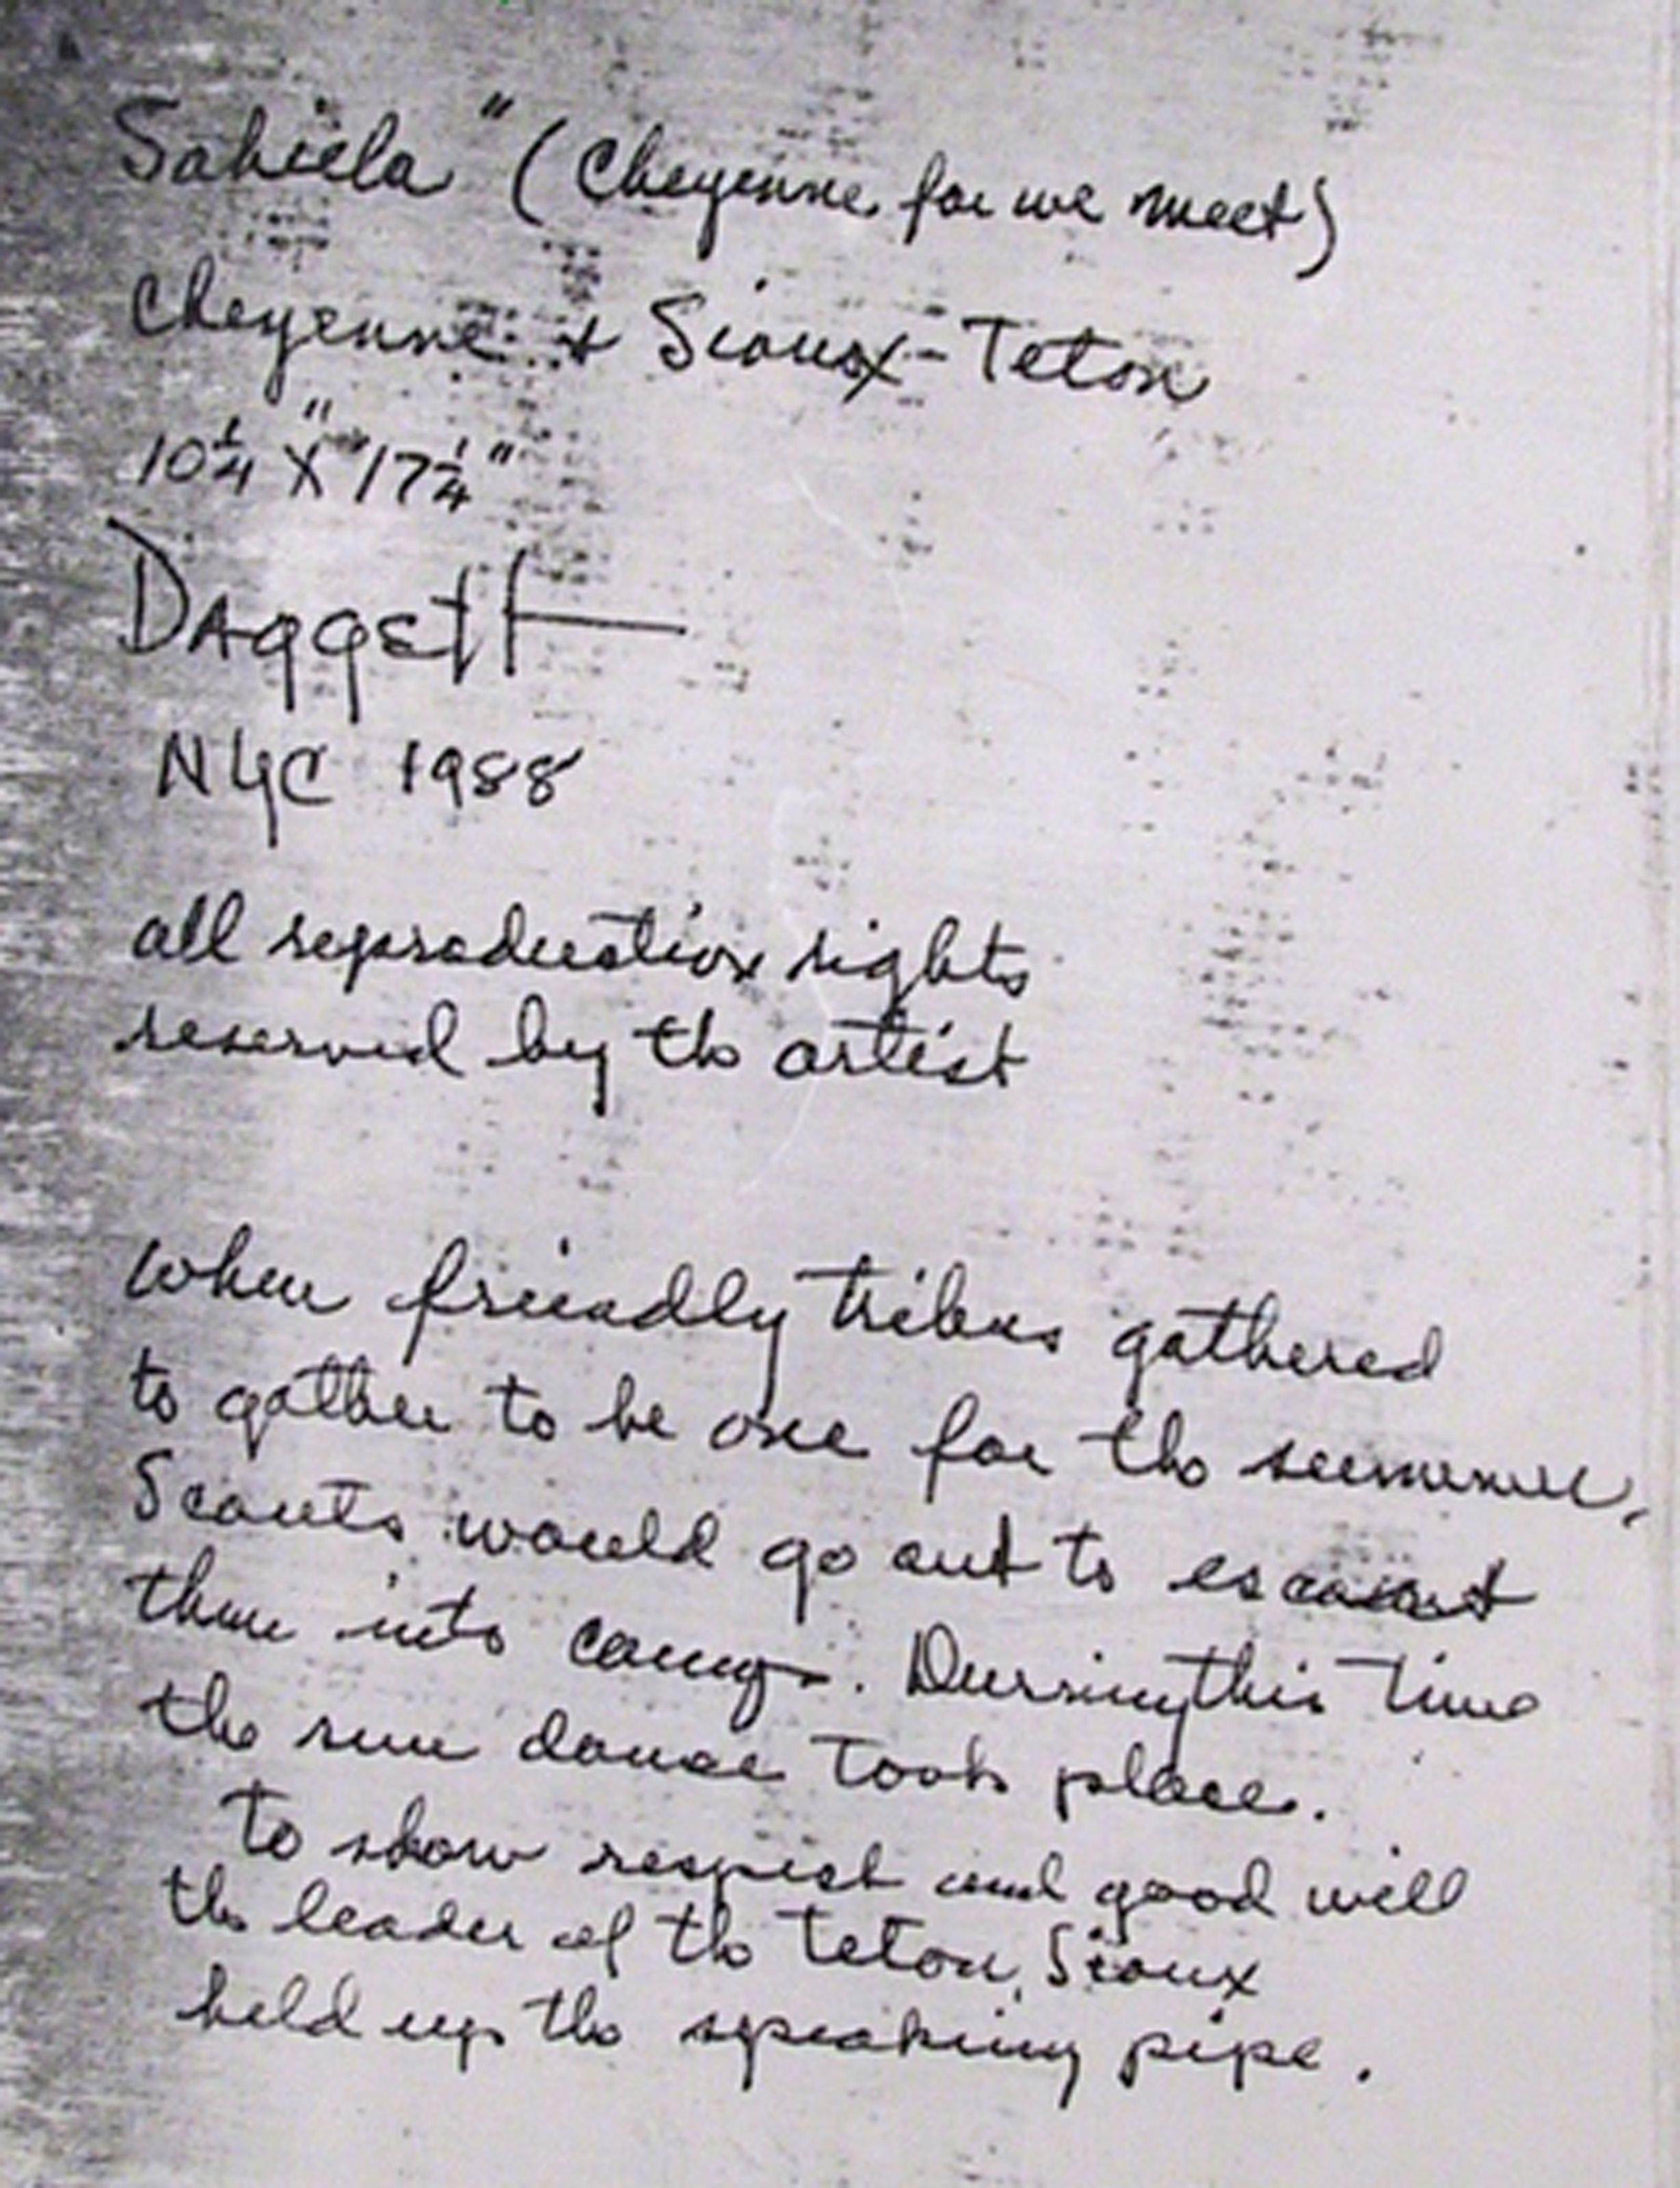 Sahiela" (Cheyenne for we meet)
Cheyenne + Sioux-Teton
10 1/4" X 17 1/4"
DAggett
NYC 1988
all reproduction rights
reserved by the artist
when friendly tribes gathered
to gather to be one for the summer,
Scouts would go out to escort
them into camp. Durring this time
the sun dance took place.
to show respect and good will
the leader of the teton, Sioux
held up the speaking pipe.